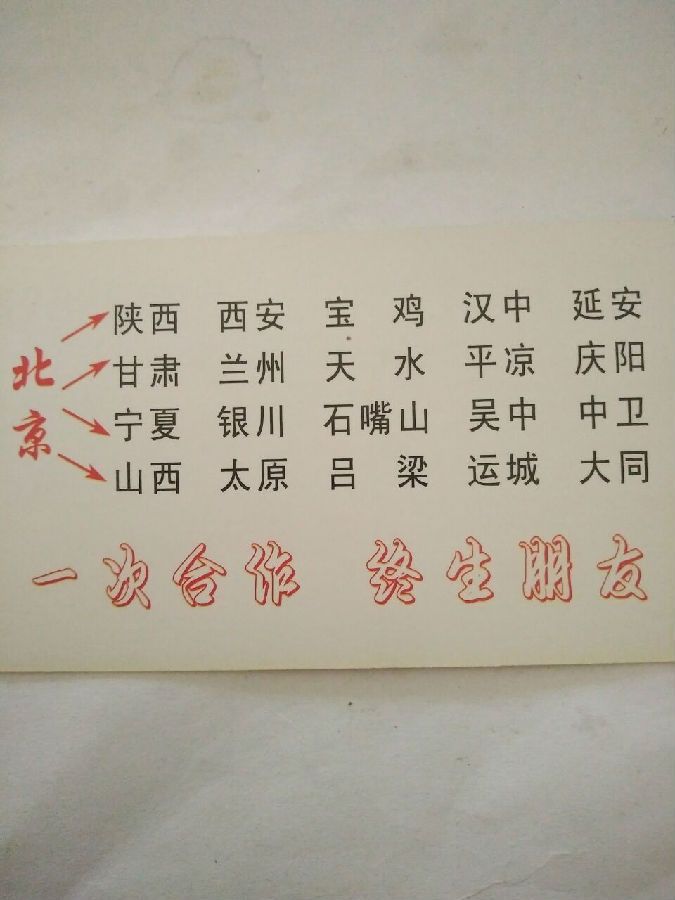 北京
陕西 西安 宝鸡 汉中 延安
甘肃 兰州 天水 平凉 庆阳
宁夏 银川 石嘴山 吴中 中卫
山西 太原 吕梁 运城 大同
一次合作 终生朋友